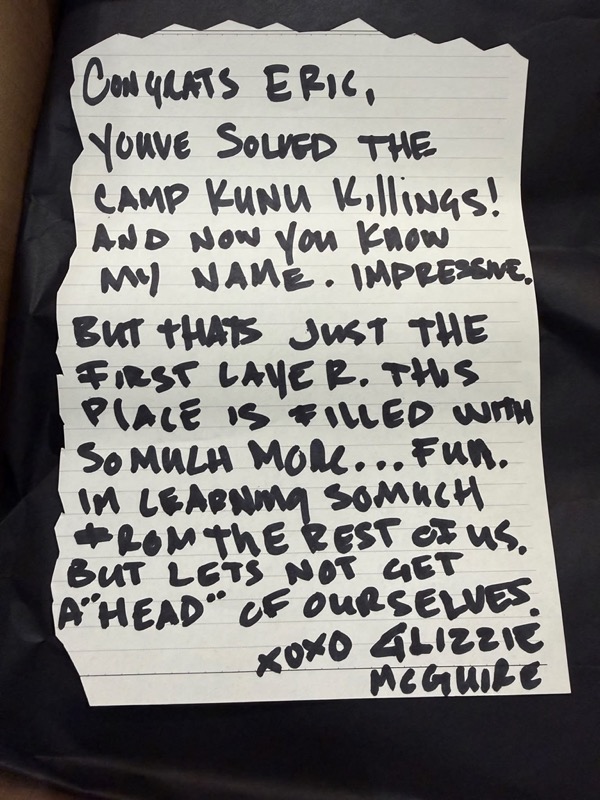 CONGRATS ERIC,
YOUVE SOLVED THE
CAMP KUNU KillINGS!
AND NOW YOU KNOW
MY NAME. IMPRESSIVE.
BUT THATS JUST THE
FIRST LAYER. THIS
PLACE IS FILLED WITH
SOMUCH MORE... FUN.
IM LEARNING SOMUCH
FROM THE REST OF US.
BUT LETS NOT GET
A "HEAD" OF OURSELVES.
XOXO GLIZZIE
MCGUIRE